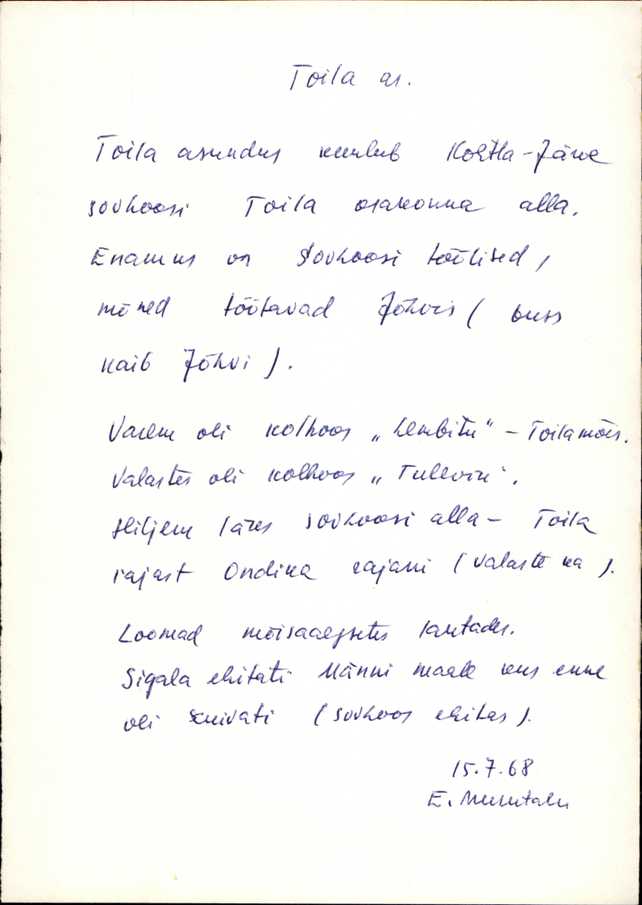 Toila as.
Toila asundus kuulub Kohtla-Järve
sovhoosi Toila osakonna alla.
Enamus on sovhoosi töölised,
mõned töötavad Jõhvis ( buss
käib Jõhvi ).
Varem oli kolhoos „Lembitu" – Toilamõis.
Valastes oli kolhoos „Tulevik".
Hiljem läks sovhoosi alla – Toila
rajast Ondika rajani ( Valaste ka ).
Loomad mõisaaegsetes lautades.
Sigala ehitati Männi maale kus enne
oli kuivati ( sovhoos ehitas ).
15.7.68
E.